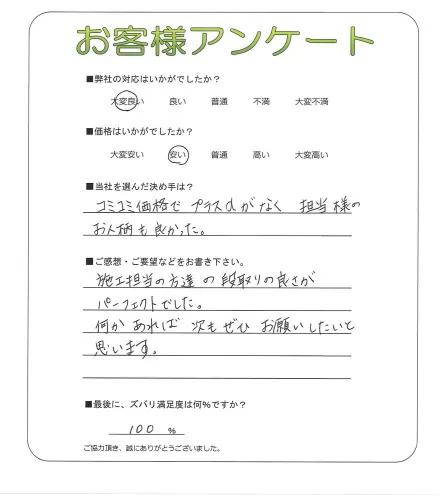 お客様アンケート
■弊社の対応はいかがでしたか?
大変良い 良い 普通 不満 大変不満
■価格はいかがでしたか?
大変安い 安い 普通 高い 大変高い
■当社を選んだ決め手は?
コミコミ価格で プラスαがなく 担当様の
お人柄も良かった。
■ご感想・ご要望などをお書き下さい。
施工担当の方達の段取りの良さが
パーフェクトでした。
何かあれば 次もぜひ お願いしたいと
思います。
■最後に、ズバリ満足度は何%ですか?
100 %
ご協力頂き、誠にありがとうございました。